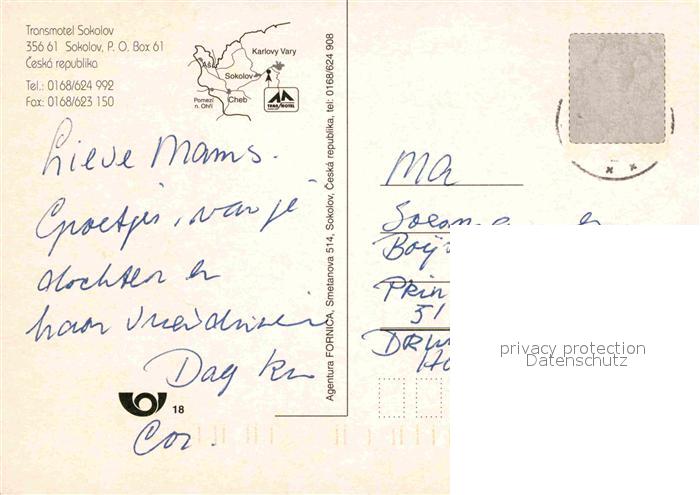 Transmotel Sokolov
356 61 Sokolov, P. O. Box 61
Česká republika
Tel.: 0168/624 992
Fax: 0168/623 150
Karlovy Vary
Aš
Sokolov
Cheb
Pomezí
n. Ohří
Lieve Mams.
Groetjes, van je
dochter en
haar vriendinnen
Dag
Cor.
18
Agentura FORNICA, Smetanova 514, Sokolov, Česká republika, tel: 0168/624 908
MA
Prin
51
privacy protection
Datenschutz